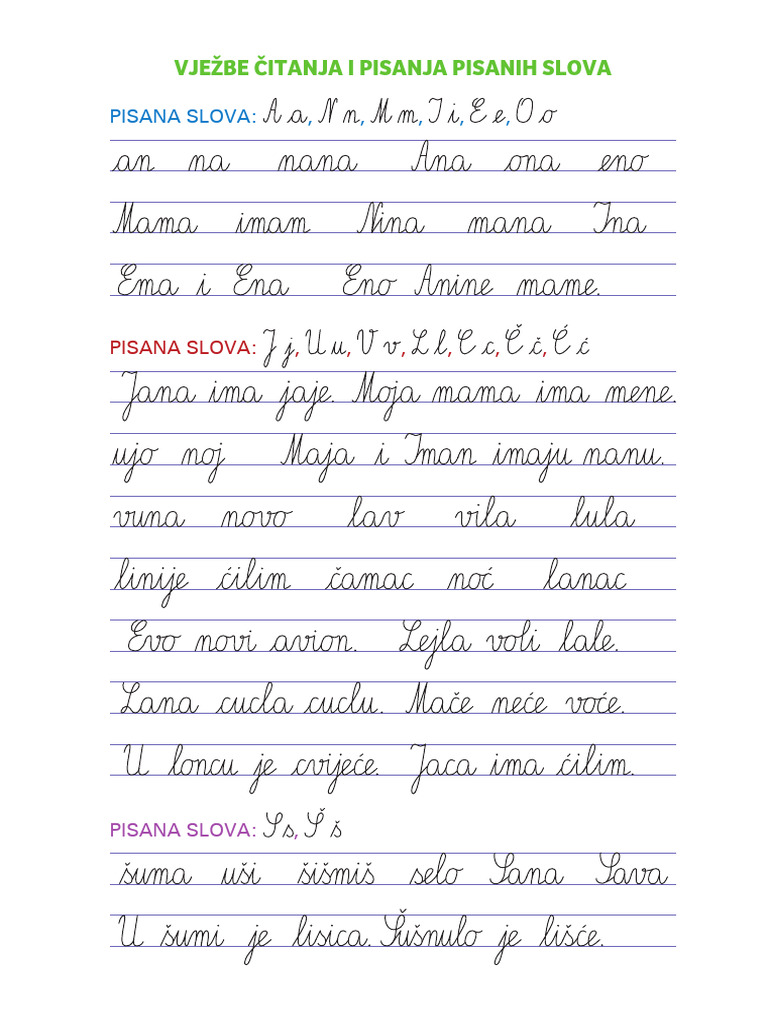 VJEŽBE ČITANJA I PISANJA PISANIH SLOVA
PISANA SLOVA: A a, N n, M m, I i, E e, O o
an na nana Ana ona eno
Mama imam Nina mana Ina
Ema i Ena Eno Anine mame.
PISANA SLOVA: J j, U u, V v, L l, C c, Č č, Ć ć
Jana ima jaje. Moja mama ima mene.
ujo noj Maja i Iman imaju nanu.
vuna novo lav vila lula
linije ćilim čamac noć lanac
Evo novi avion. Lejla voli lale.
Lana cucla cuclu. Mače neće voće.
U loncu je cvijeće. Jaca ima ćilim.
PISANA SLOVA: S s, Š š
šuma uši šišmiš selo Sana Sava
U šumi je lisica. Šušnulo je lišće.